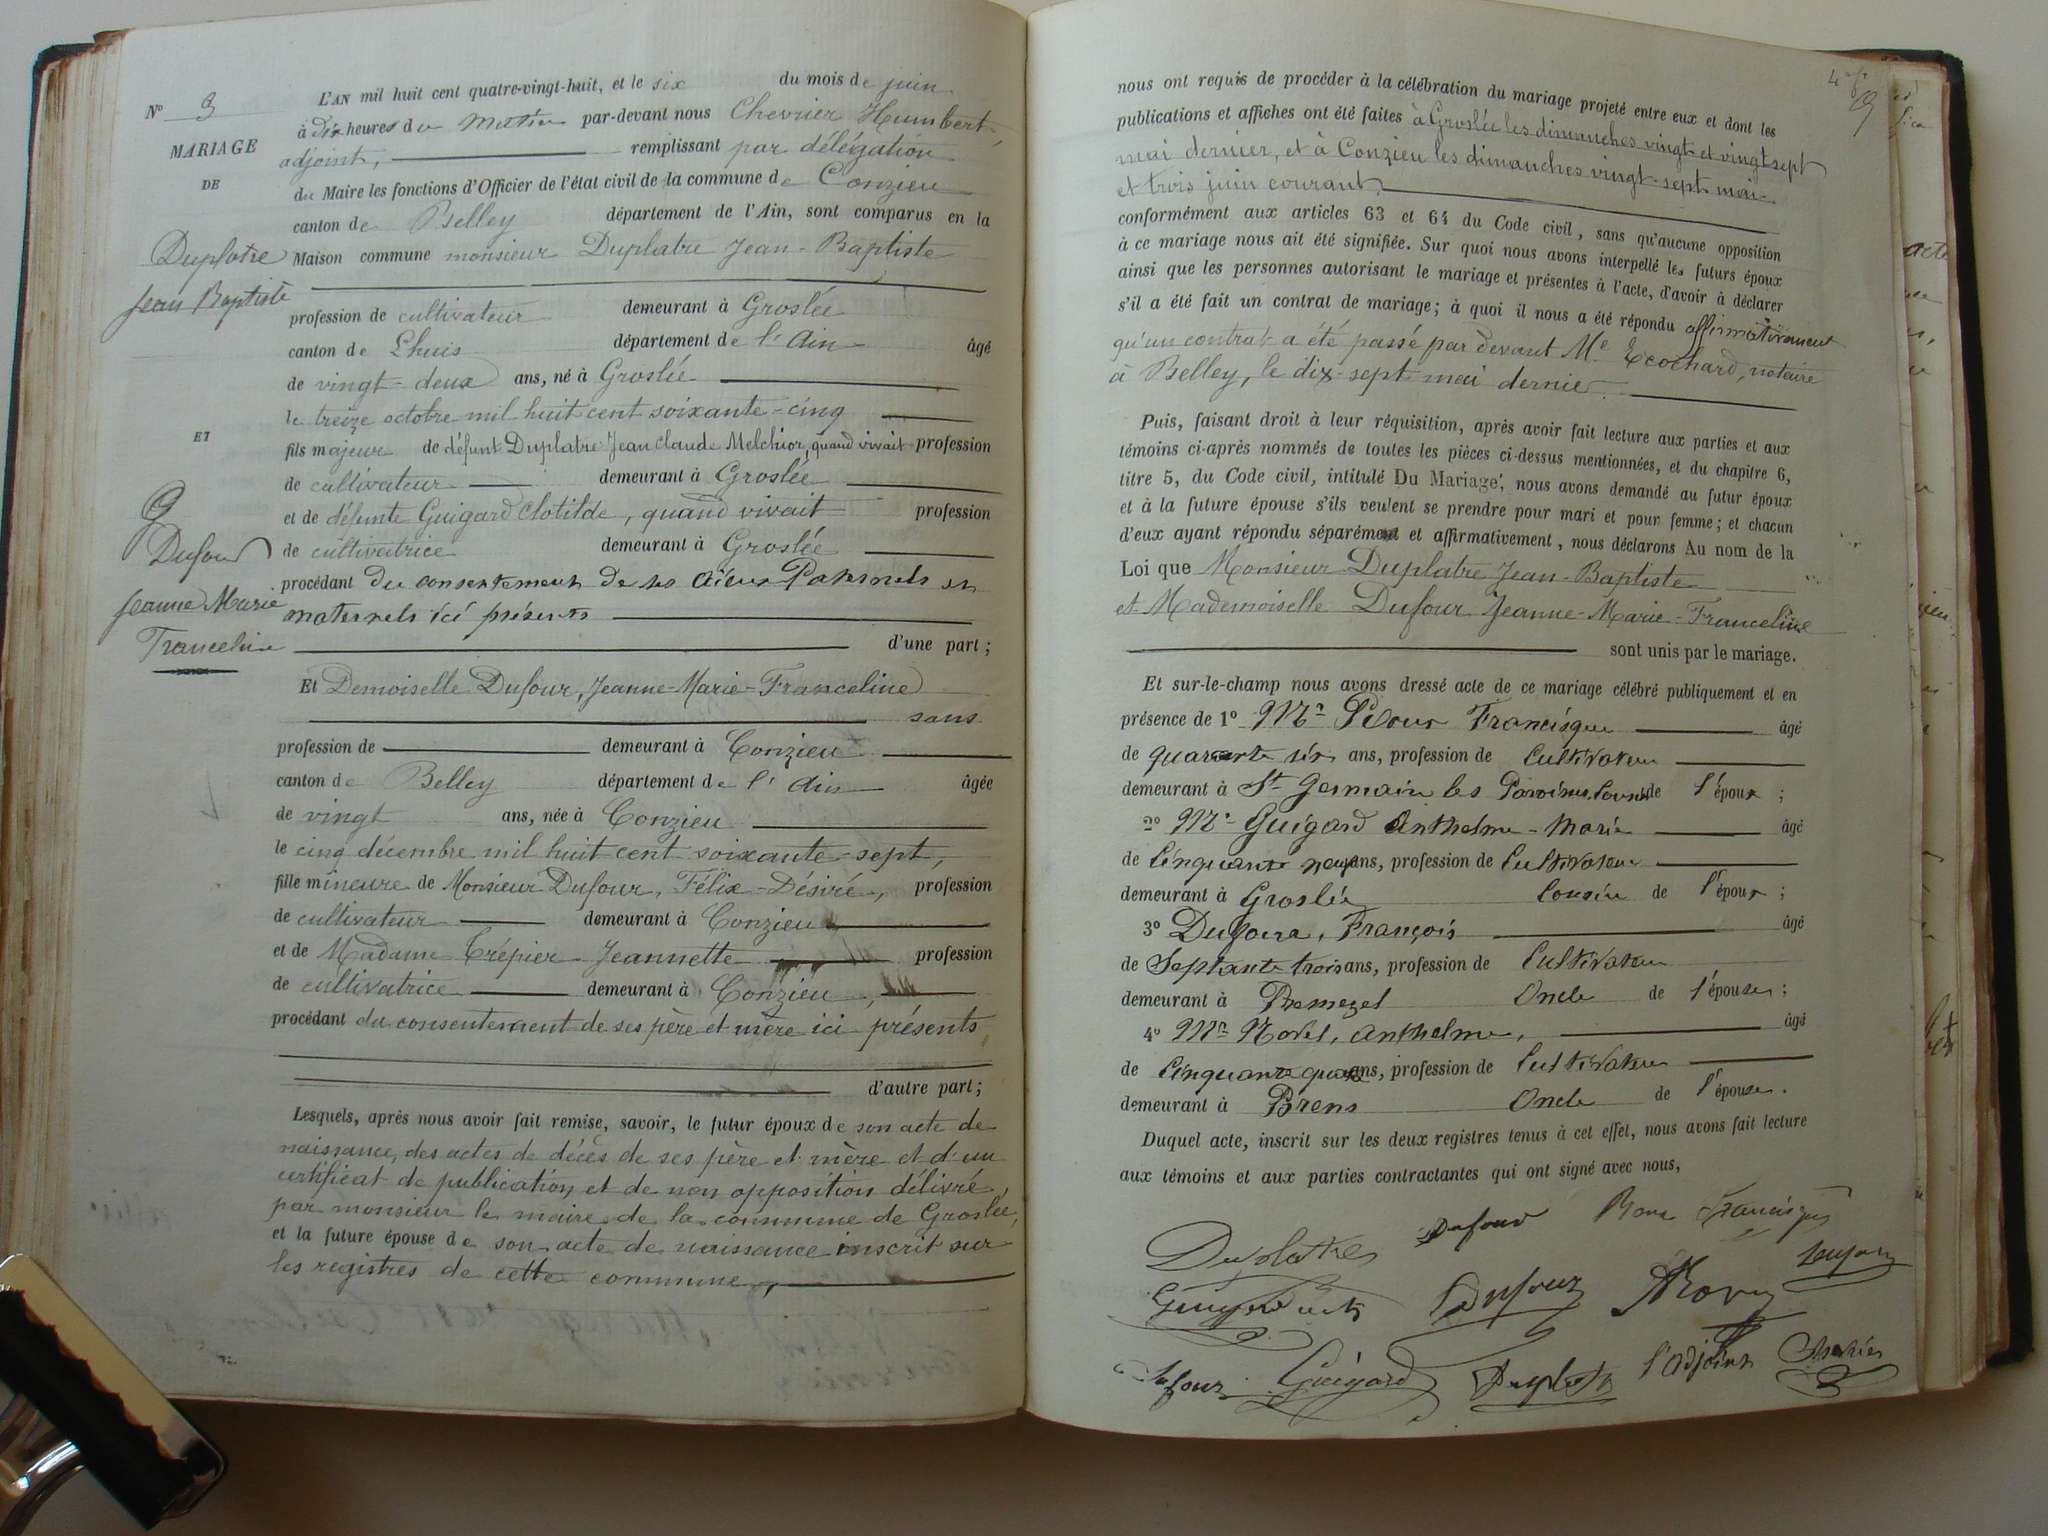 N° 9
MARIAGE
DE
Duplatre
Jean Baptiste
ET
Dufour
Jeanne Marie
Franceline
L'AN mil huit cent quatre-vingt-huit, et le six du mois de juin
à dix heures du matin par-devant nous Chevrier Humbert,
adjoint, remplissant par délégation
du Maire les fonctions d'Officier de l'état civil de la commune de Conzieu
canton de Belley département de l'Ain, sont comparus en la
Maison commune monsieur Duplatre Jean-Baptiste
profession de cultivateur demeurant à Groslée
canton de Lhuis département de l'Ain âgé
de vingt-deux ans, né à Groslée
le treize octobre mil huit cent soixante-cinq
fils majeur de défunt Duplatre Jean Claude Melchior, quand vivait profession
de cultivateur demeurant à Groslée
et de défunte Guigard Clotilde, quand vivait profession
de cultivatrice demeurant à Groslée
procédant du consentement de ses aïeux Paternels et
maternels ici présents
d'une part;
Et Demoiselle Dufour, Jeanne-Marie-Franceline
sans
profession de demeurant à Conzieu
canton de Belley département de l'Ain âgée
de vingt ans, née à Conzieu
le cinq décembre mil huit cent soixante-sept,
fille mineure de Monsieur Dufour, Félix-Désiré, profession
de cultivateur demeurant à Conzieu
et de Madame Crépier Jeannette profession
de cultivatrice demeurant à Conzieu,
procédant du consentement de ses père et mère ici présents
d'autre part;
Lesquels, après nous avoir fait remise, savoir, le futur époux de son acte de
naissance, des actes de décès de ses père et mère et d'un
certificat de publication et de non opposition délivré,
par monsieur le maire de la commune de Groslée,
et la future épouse de son acte de naissance inscrit sur
les registres de cette commune,
9
nous ont requis de procéder à la célébration du mariage projeté entre eux et dont les
publications et affiches ont été faites à Groslée les dimanches vingt et vingt sept
mai dernier, et à Conzieu les dimanches vingt-sept mai
et trois juin courant,
conformément aux articles 63 et 64 du Code civil, sans qu'aucune opposition
à ce mariage nous ait été signifiée. Sur quoi nous avons interpellé les futurs époux
ainsi que les personnes autorisant le mariage et présentes à l'acte, d'avoir à déclarer
s'il a été fait un contrat de mariage; à quoi il nous a été répondu affirmativement
qu'un contrat a été passé par devant Me Ecochard, notaire
à Belley, le dix-sept mai dernier.
Puis, faisant droit à leur réquisition, après avoir fait lecture aux parties et aux
témoins ci-après nommés de toutes les pièces ci-dessus mentionnées, et du chapitre 6,
titre 5, du Code civil, intitulé Du Mariage, nous avons demandé au futur époux
et à la future épouse s'ils veulent se prendre pour mari et pour femme; et chacun
d'eux ayant répondu séparément et affirmativement, nous déclarons Au nom de la
Loi que Monsieur Duplatre Jean-Baptiste
et Mademoiselle Dufour Jeanne-Marie-Franceline
sont unis par le mariage.
Et sur-le-champ nous avons dressé acte de ce mariage célébré publiquement et en
présence de 1° Mr Francisque âgé
de quarante six ans, profession de Cultivateur
demeurant à St Germain les Paroisses de l'époux;
2° Mr Guigard Anthelme-Marie âgé
de Cinquante neuf ans, profession de Cultivateur
demeurant à Groslée Cousin de l'époux;
3° Dufour, François âgé
de Septante trois ans, profession de Cultivateur
demeurant à Premeyzel Oncle de l'épouse;
4° Mr Morel, Anthelme, âgé
de Cinquante quatre ans, profession de Cultivateur
demeurant à Brens Oncle de l'épouse.
Duquel acte, inscrit sur les deux registres tenus à cet effet, nous avons fait lecture
aux témoins et aux parties contractantes qui ont signé avec nous,
Duplatre Dufour Francisque
Dufour
Dufour Guigard Duplatre l'adjoint Chevrier